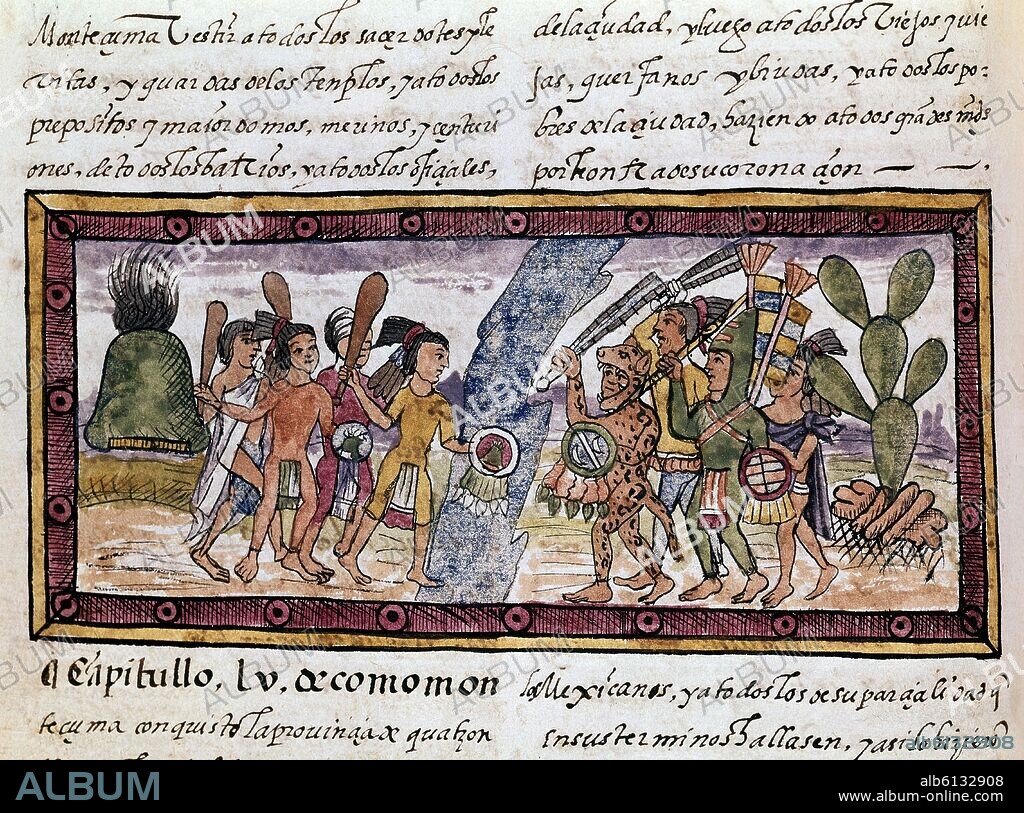 Monteçuma Vestir a todos los sacerdotes y le
vitas, y guardas de los tenplos, y a todos los
prepositos y maiordomos, merinos, y centuri
ones, de todos los batrios, ya todos los ofiçiales,
de la çiudad, y luego a todos los Viejos y uie
jas, guerfanos y biudas, y a todos los po-
bres de la çiudad, haziendo a todos grandes mds
por honrra de su coronaçion — —.
¶ Capitullo, lv, de como mon
teçuma conquisto la prouinçia de quatzon
los Mexicanos, y a todos los de su parçialidad q
en sus terminos hallasen, y asi lo
ALBUM
alb6132908
ALBUM
alb6132908
www.album-online.com